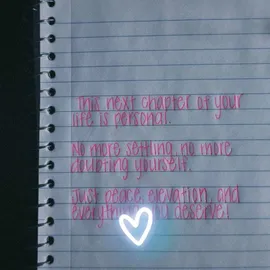 This next chapter of your
life is personal.
No more settling, no more
doubting yourself.
Just peace, elevation, and
everything you deserve!